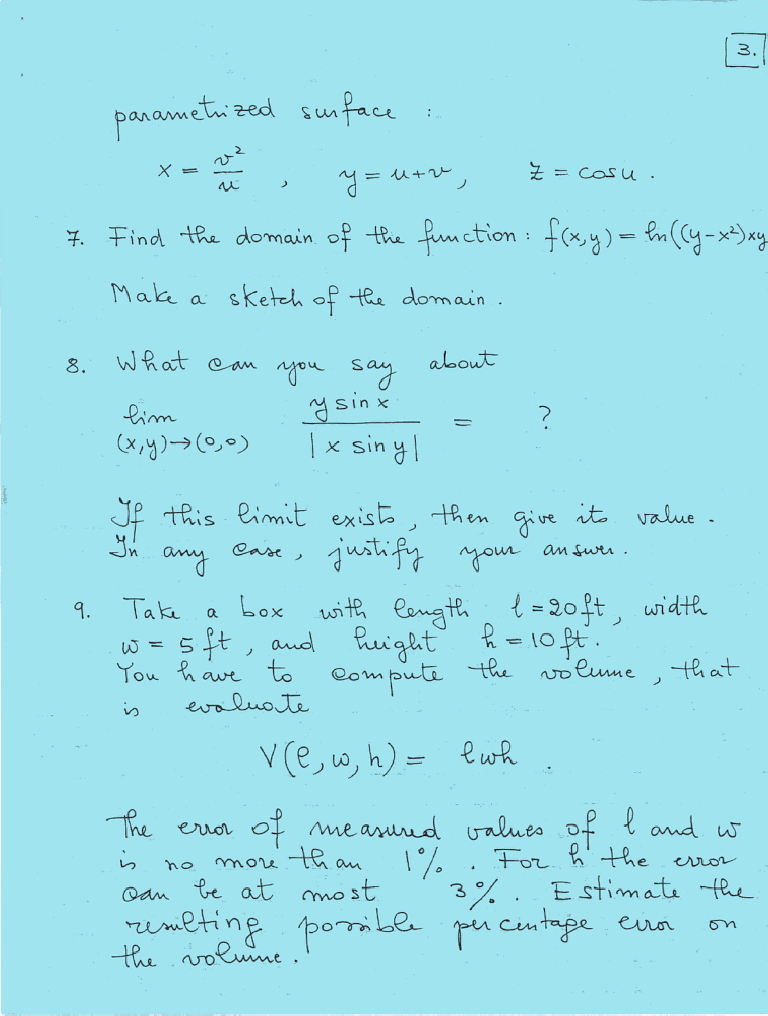 3.
parametrized surface :
x = v²/u , y = u+v, z = cos u .
7. Find the domain of the function : f(x,y) = ln((y-x²)xy
Make a sketch of the domain .
8. What can you say about
lim (x,y)→(0,0) y sin x / |x sin y| = ?
If this limit exists, then give its value .
In any case, justify your answer .
9. Take a box with length l = 20 ft, width
w = 5 ft, and height h = 10 ft.
You have to compute the volume, that
is evaluate
V(l, w, h) = lwh .
The error of measured values of l and w
is no more than 1% . For h the error
can be at most 3% . Estimate the
resulting possible percentage error on
the volume .